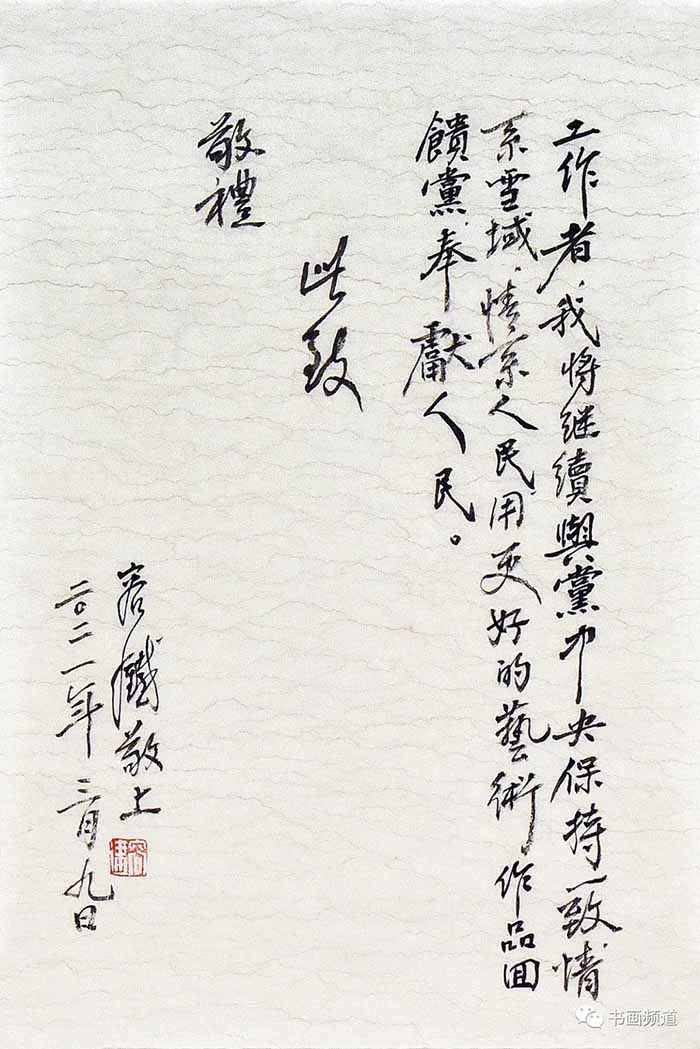 工作者，我将继續與黨中央保持一致情
系雪域，情系人民，用更好的藝術作品回
饋黨，奉獻人民。
此致
敬禮
容鐵敬上
二〇二一年三月九日
书画频道